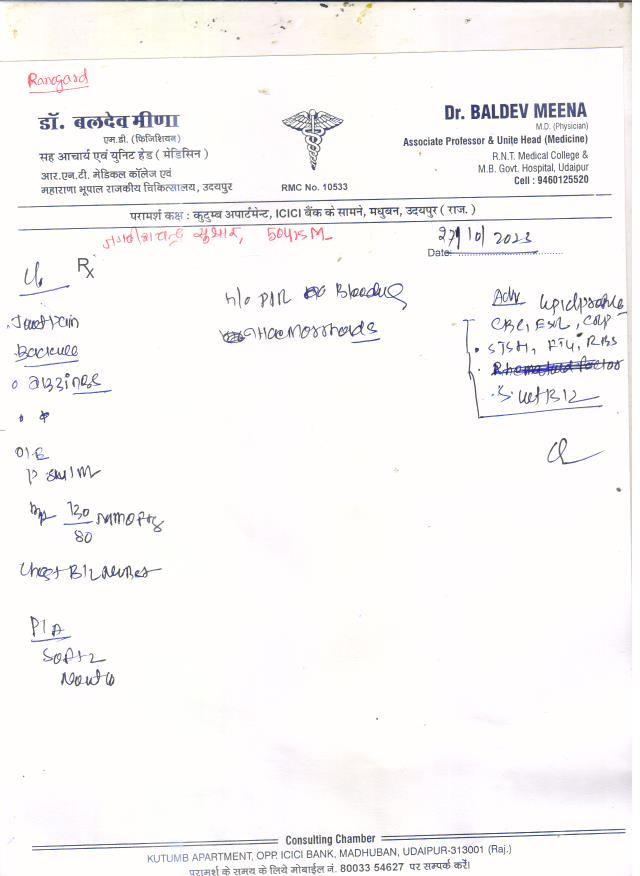 Ranogard
डॉ. बलदेव मीणा
एम.डी. (फिजिशियन)
सह आचार्य एवं युनिट हेड ( मेडिसिन )
आर.एन.टी. मेडिकल कॉलेज एवं
महाराणा भूपाल राजकीय चिकित्सालय, उदयपुर
RMC No. 10533
Dr. BALDEV MEENA
M.D. (Physician)
Associate Professor & Unite Head (Medicine)
R.N.T. Medical College &
M.B. Govt. Hospital, Udaipur
Cell : 9460125520
परामर्श कक्ष : कुटुम्ब अपार्टमेन्ट, ICICI बैंक के सामने, मधुबन, उदयपुर ( राज. )
सुथार, 50yrs M
Date: 27/10/2023
Rx
C/o
Joint Pain
h/o P/R Bleeding
Haemorrhoids
Adv Lipid profile
CBC, ESR, CRP
S.TSH, RBS
S. Vit B12
O/E
Bp 130/80 mmofHg
Chest B/L
P/A
Soft
Consulting Chamber
KUTUMB APARTMENT, OPP. ICICI BANK, MADHUBAN, UDAIPUR-313001 (Raj.)
परामर्श के समय के लिये मोबाईल नं. 80033 54627 पर सम्पर्क करें।